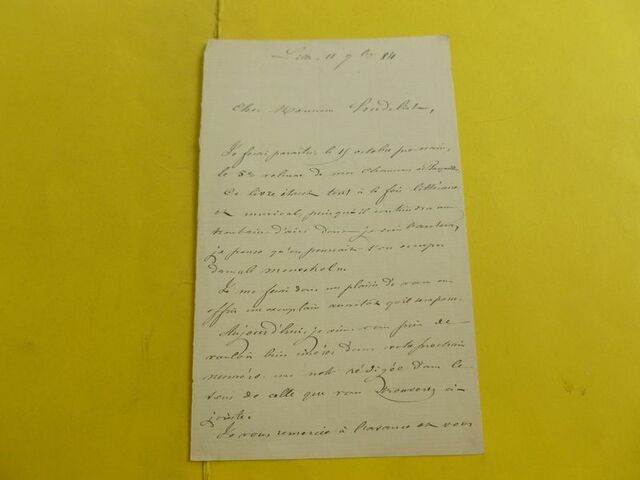 11 9bre 84
Cher Monsieur
Je ferai paraître le 15 octobre prochain,
le 5e volume de mes chansons
Ce livre étant tout à la fois littéraire
et musical, puisqu'il contiendra une
trentaine d'airs dont je suis l'auteur,
je pense qu'on pourrait s'en occuper
dans le
Je me ferai donc un plaisir de vous en
offrir un exemplaire aussitôt qu'il
Aujourd'hui, je viens vous prier de
vouloir bien insérer dans votre prochain
numéro une note rédigée dans le
sens de celle que vous trouverez ci-
jointe.
Je vous remercie à l'avance et vous